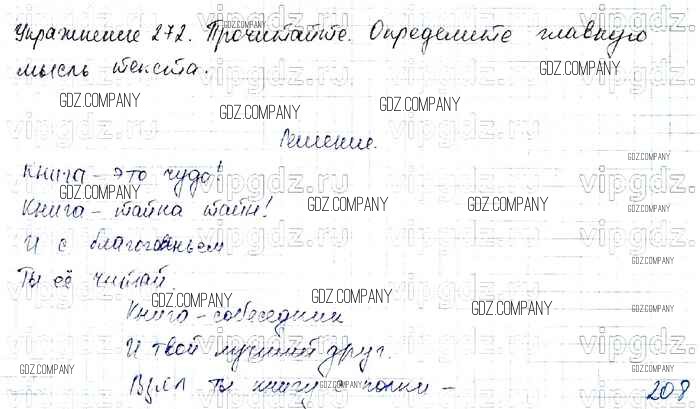 Упражнение 272. Прочитайте. Определите главную
мысль текста.
Решение.
Книга – это чудо!
Книга – тайна тайн!
И с благоговеньем
Ты её читай.
Книга – собеседник
И твой лучший друг.
Взял ты книгу с полки –
208
GDZ.COMPANY
vipgdz.ru